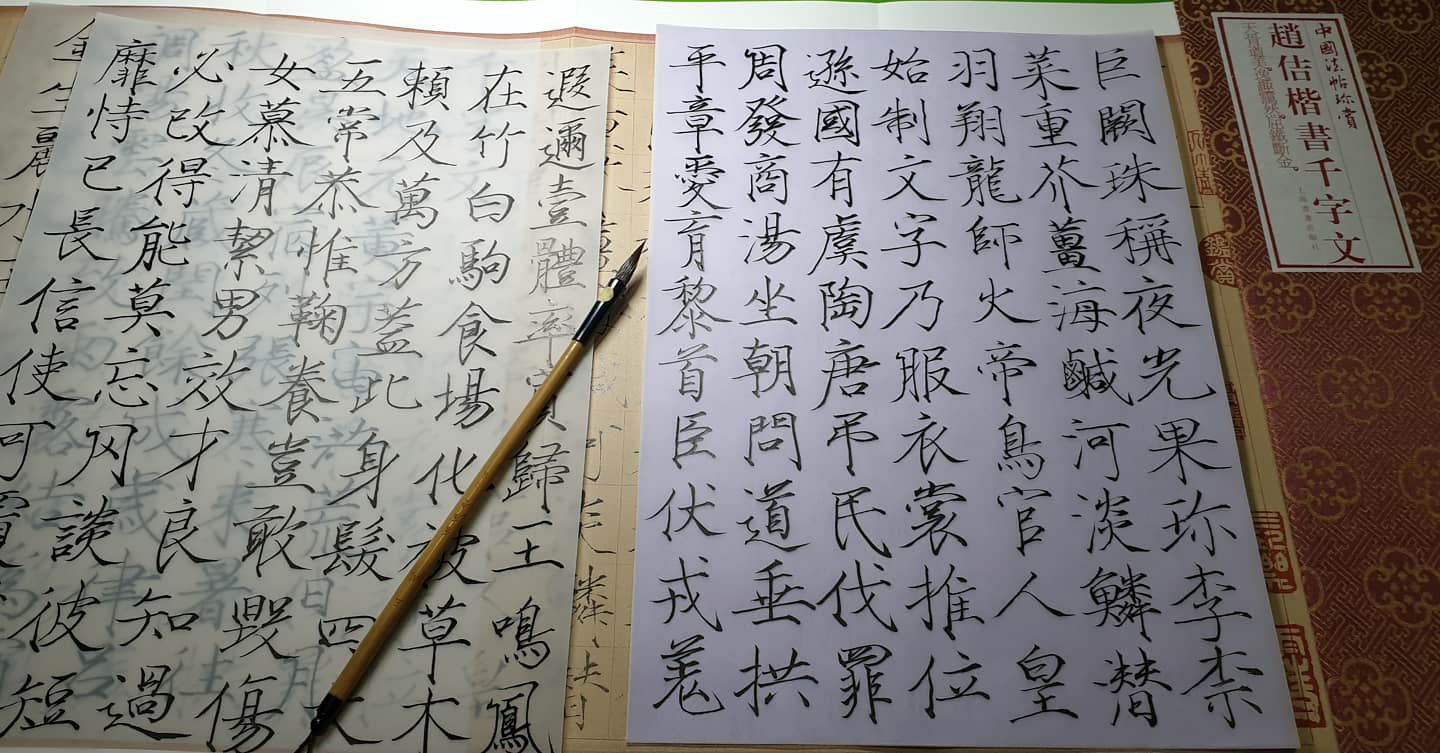 中國法帖珍賞
趙佶楷書千字文
巨闕珠稱夜光果珍李柰
菜重芥薑海鹹河淡鱗潛
羽翔龍師火帝鳥官人皇
始制文字乃服衣裳推位
遜國有虞陶唐弔民伐罪
周發商湯坐朝問道垂拱
平章愛育黎首臣伏戎羌
遐邇壹體率賓歸王鳴鳳
在竹白駒食場化被草木
賴及萬方蓋此身髮四大
五常恭惟鞠養豈敢毀傷
女慕清絜男效才良知過
必改得能莫忘罔談彼短
靡恃已長信使可覆
金生麗水